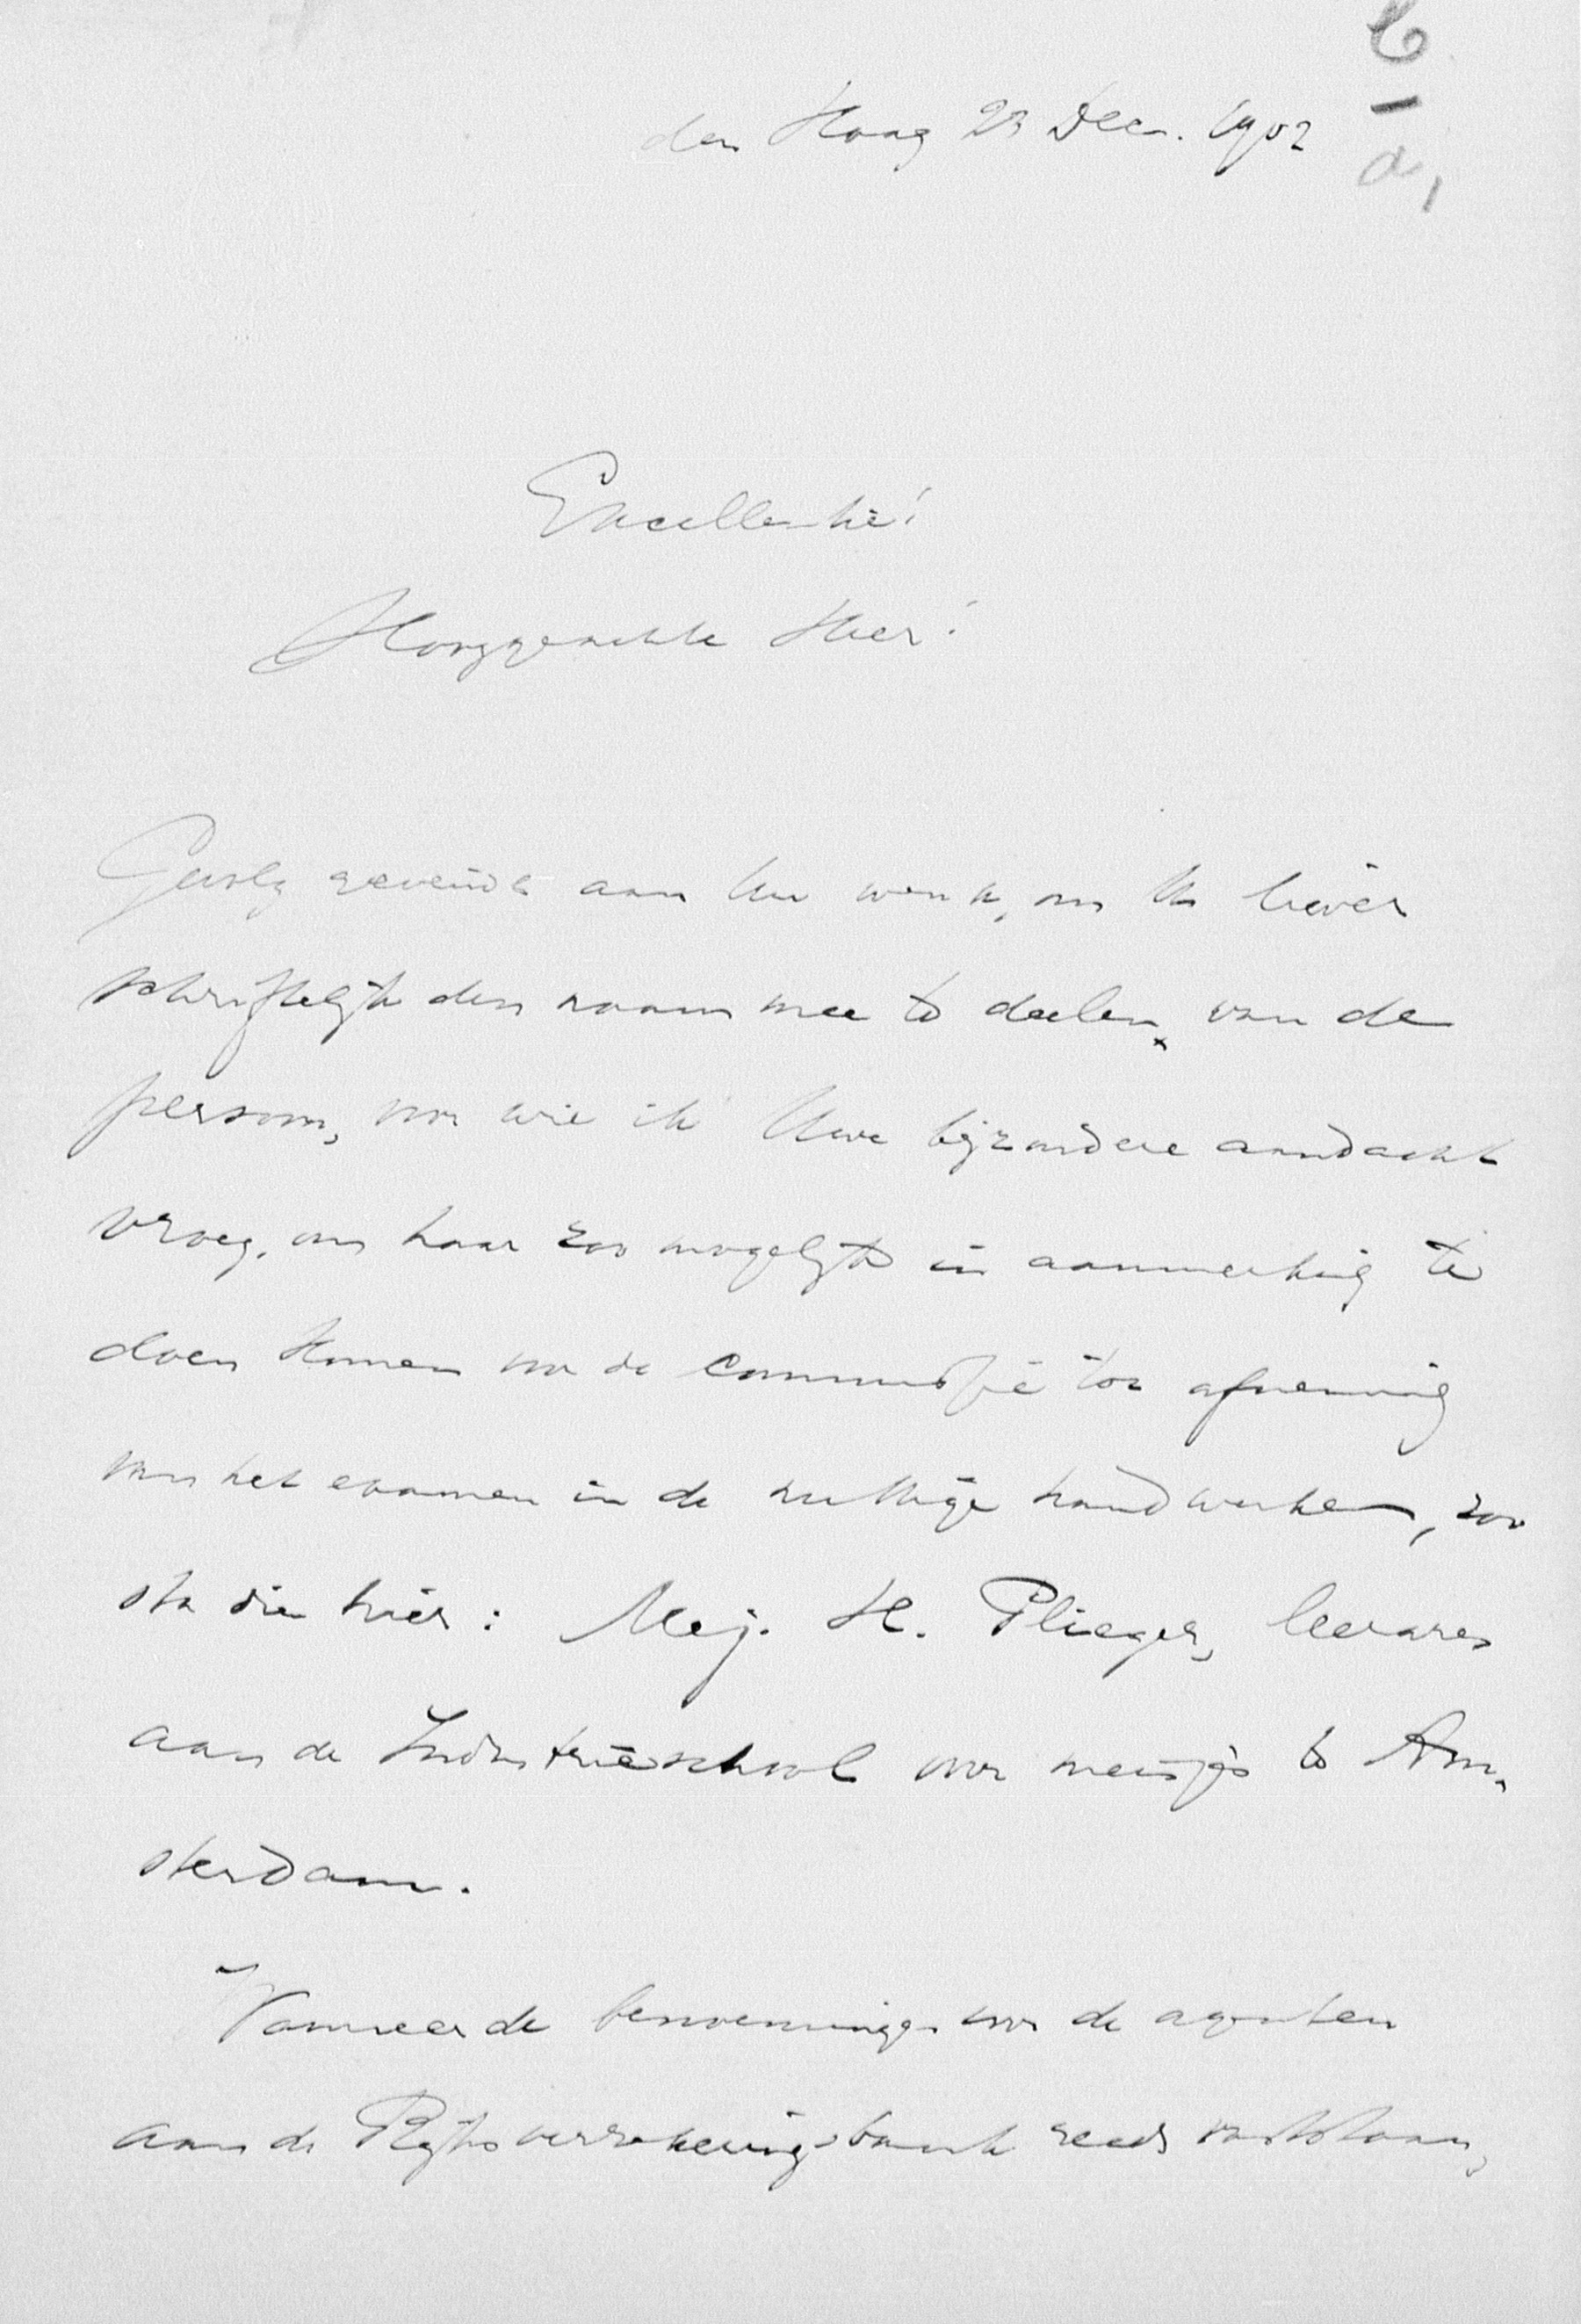 den Haag 23 Dec. 1902
Excellentie!
Hooggeachte Heer!
Gevolg gevende aan Uw wenk, om U liever
schriftelijk den naam mee te deelen, van de
persoon, voor wie ik Uwe bijzondere aandacht
vroeg, om haar zoo mogelijk in aanmerking te
doen komen voor de commissie tot afneming
van het examen in de nuttige handwerken, zoo
sta die hier: Mej. H. Plieger, leerares
aan de Industrieschool voor meisjes te Am-
sterdam.
Wanneer de benoemingen voor de agenten
aan de Rijksverzekeringsbank reeds vaststaan,